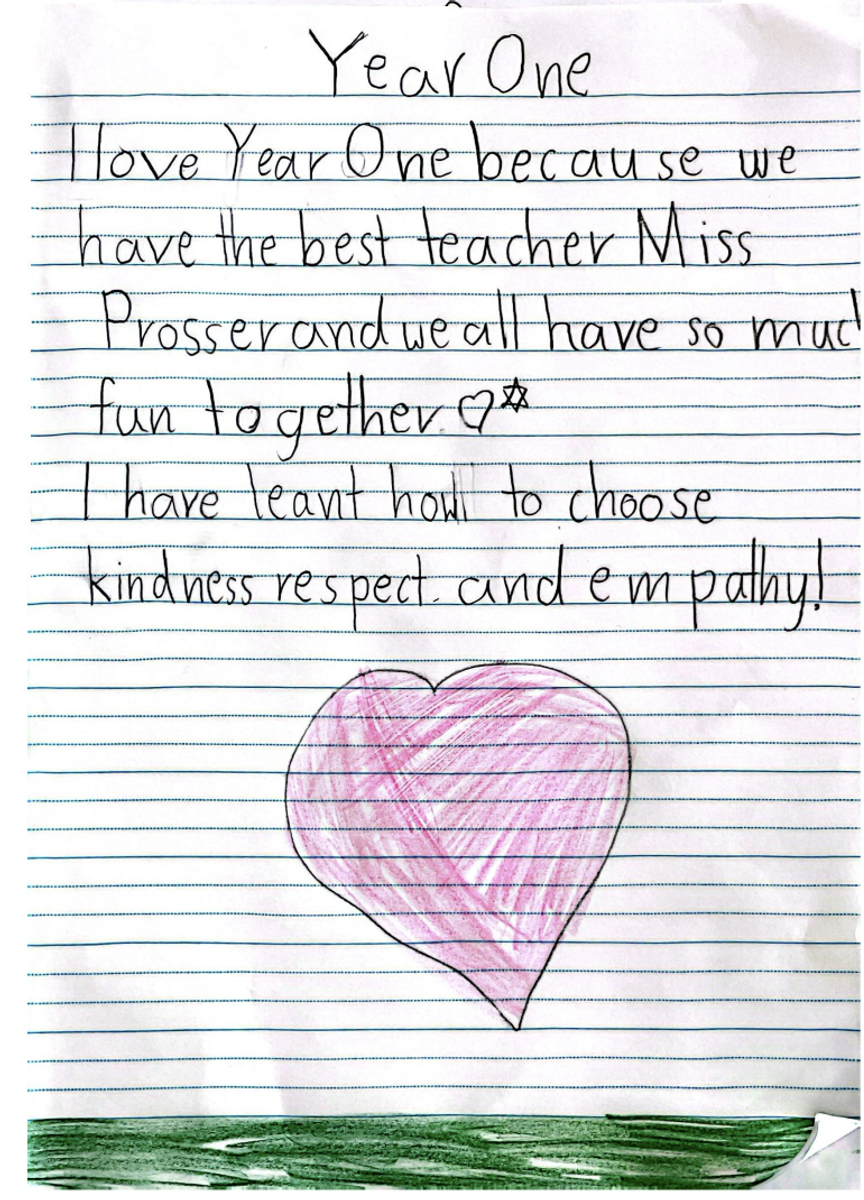 Year One
I love Year One because we
have the best teacher Miss
Prosser and we all have so much
fun together. ♡✡
I have leant how to choose
kindness respect. and empathy!